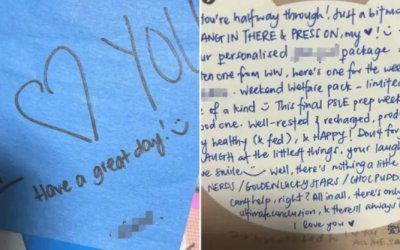 ♡ YOU
Have a great day! :)
You're halfway through! Just a bit mo
HANG IN THERE & PRESS ON, my ♥! :)
ur personalised package
en one from WW, here's one for the wee
Weekend Welfare pack - limited
of a kind :) This final PSLE prep week
ood one. Well-rested & recharged, prod
y healthy (& fed), & HAPPY! Don't for
LAUGH at the littlest things, your laugh
e smile :) Well, there's nothing a little
NERDS / GOLDEN LUCKY STARS / CHOC PUDD
can't help, right? All in all, there's only
ultimate conclusion, & there'll always
I love you ♥